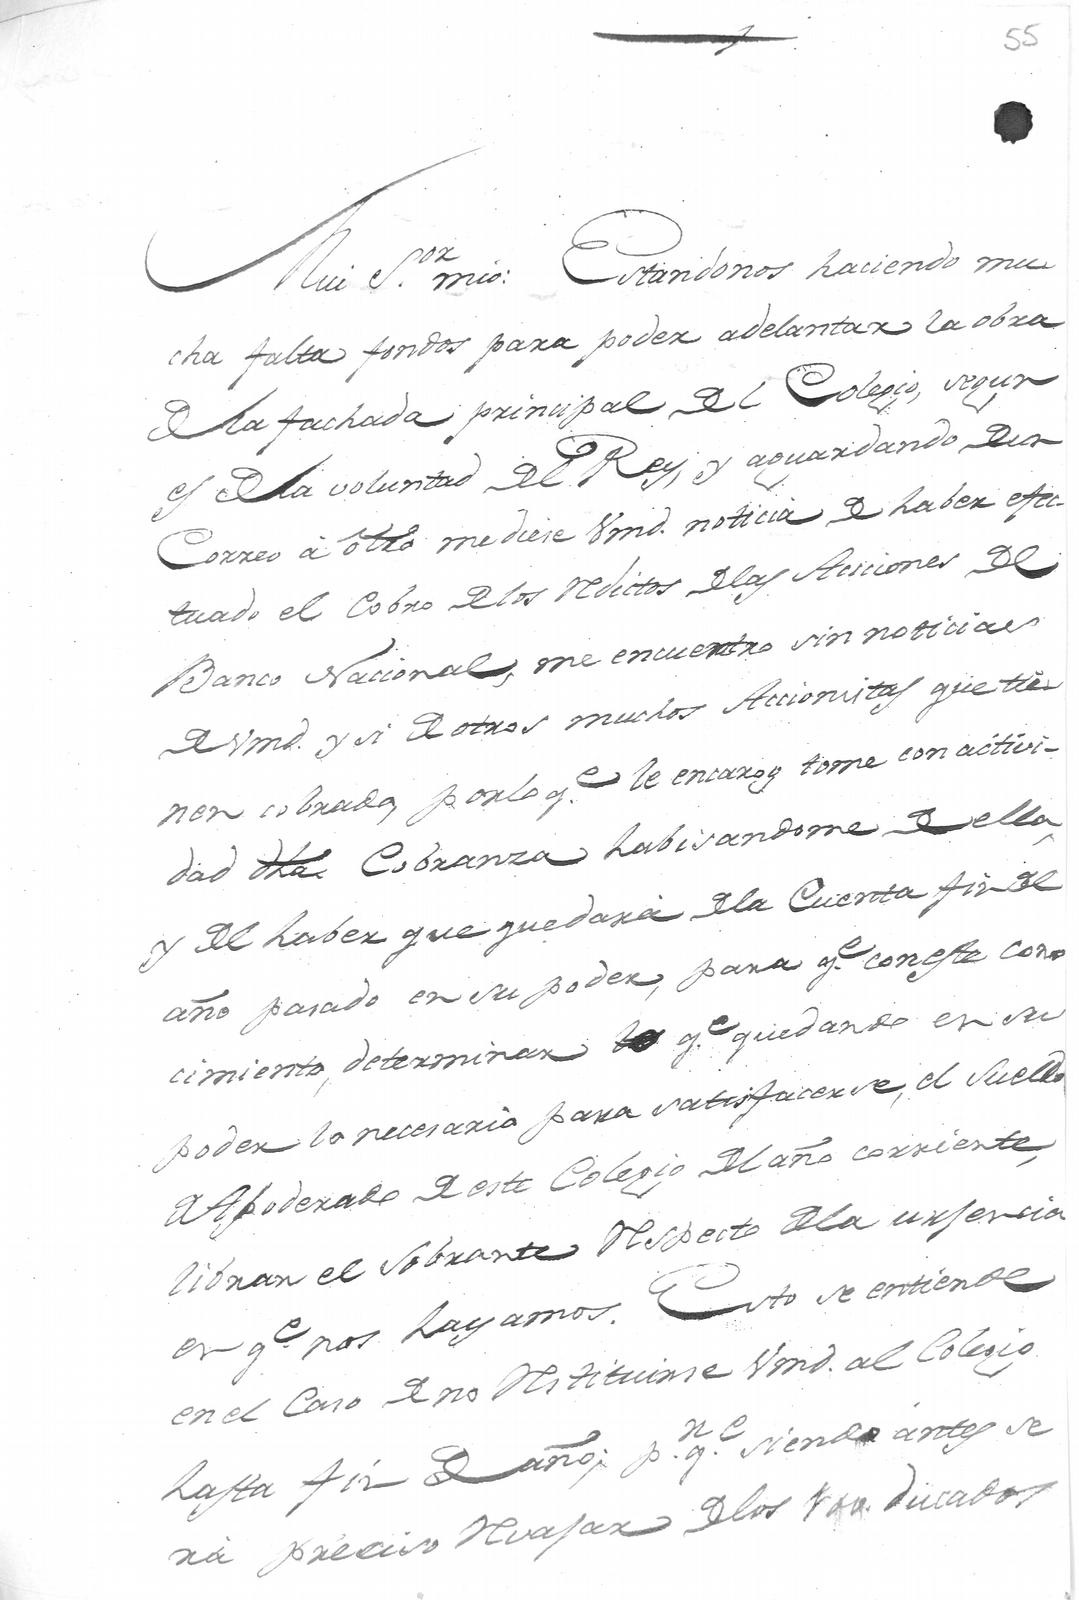 55
Mui S.or mio: Estandonos haciendo mu-
cha falta fondos para poder adelantar la obra
de la fachada principal del Colegio, segun
es de la voluntad del Rey, y aguardando de un
Correo à otro me diese Vmd. noticia de haber efec-
tuado el Cobro de los Réditos de las Acciones del
Banco Nacional, me encuentro sin noticias
de Vmd. y si de otros muchos Accionistas que tie-
nen cobrado, por lo q.e le encargo tome con activi-
dad dha. Cobranza habisandome de ella,
y del haber que quedarà de la Cuenta fin del
año pasado en su poder, para q.e con este cono-
cimiento, determinar lo q.e quedando en su
poder lo necesario para satisfacerse, el sueldo
de Apoderado de este Colegio del año corriente,
librar el sobrante respecto de la urgencia
en q.e nos hayamos. Esto se entiende
en el Caso de no restituirse Vmd. al Colegio
hasta fin de año; p.r q.e siendo ántes se
rà preciso revajar de los ducados